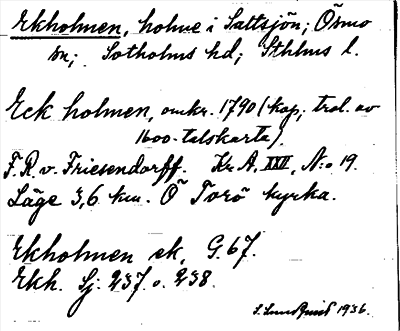 Ekholmen, holme i Saltsjön; Ösmo
sn; Sotholms hd; Sthlms l.
Eck holmen, omkr. 1790 (kop; trol. av
1600-talskarta).
F. R. v. Friesendorff. Kr. A. XXV, N:o 19.
Läge 3,6 km. Ö Torö kyrka.
Ekholmen ek. G. 67.
Ekh. Sj. 237 o. 238.
S. Lundquist 1936.